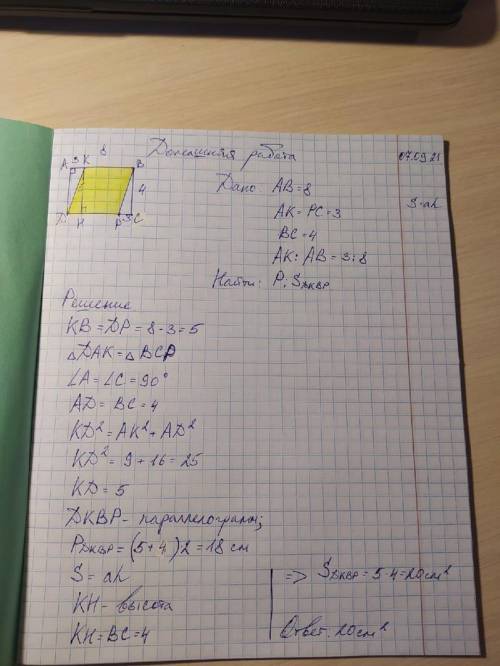 Домашняя работа 07.09.21
8
A 3 K B
4
D H P 3 C
Дано AB = 8
AK = PC = 3
S = ah
BC = 4
AK : AB = 3 : 8
Найти: P; S DKBP
Решение
KB = DP = 8 - 3 = 5
△DAK = △BCP
∠A = ∠C = 90°
AD = BC = 4
KD² = AK² + AD²
KD² = 9 + 16 = 25
KD = 5
DKBP - параллелограмм;
P DKBP = (5 + 4)2 = 18 см
S = ah
=> S DKBP = 5 · 4 = 20 см²
KH - высота
KH = BC = 4
Ответ. 20 см²